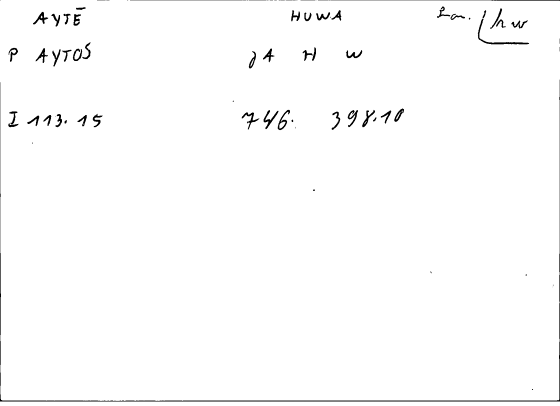 AYTĒ HUWA hw
P AYTOS A H W
I 113.15 746. 398.10